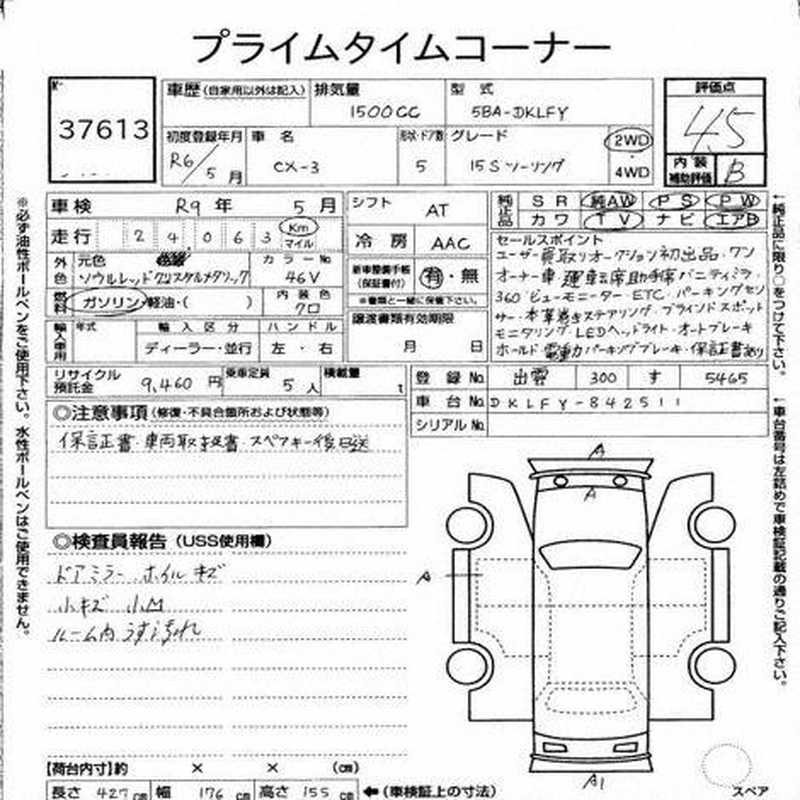 プライムタイムコーナー
37613
車歴 (自家用以外は記入) 排気量 型式 評価点
1500CC 5BA-DKLFY 4.5
初度登録年月 車名 形状・ドア数 グレード 2WD
R6/5月 CX-3 5 15Sツーリング 4WD
内装補助評価 B
車検 R9年 5月 シフト AT
純正品 SR 純AW PS PW
カワ TV ナビ エアB
走行 24,063 Km マイル 冷房 AAC
セールスポイント
ユーザー買取りオークション初出品・ワン
オーナー車 運転席助手席バニティミラ・
360°ビューモニター・ETC・パーキングセン
サー・本革巻きステアリング・ブラインドスポット
モニタリング・LEDヘッドライト・オートブレーキ
ホールド 電動パーキングブレーキ・保証書あり
外色 元色 カラーNo
ソウルレッドクリスタルメタリック 46V
新車整備手帳(保証書付) 有・無
※書類と一緒に保管下さい。
燃料 ガソリン・軽油・( ) 内装色 クロ
譲渡書類有効期限
月 日
輸入車用 年式 輸入区分 ハンドル
ディーラー・並行 左・右
リサイクル預託金 9,460円 乗車定員 5人 積載量 t
登録No. 出雲 300 す 5465
車台No. DKLFY-842511
シリアルNo.
◎注意事項 (修復・不具合箇所および状態等)
保証証書・車両取扱書・スペアキー後日送
◎検査員報告 (USS使用欄)
ドアミラー ホイルキズ
小キズ 小M
ルーム内 うす汚れ
A
A
A
A1
スペア
【荷台内寸】約 × × (cm)
長さ 427cm 幅 176cm 高さ 155cm ←(車検証上の寸法)
※必ず油性ボールペンをご使用下さい。水性ボールペンはご使用できません。
←純正品に限り○をつけて下さい。
←車台番号は左詰めで車検証記載の通りご記入下さい。